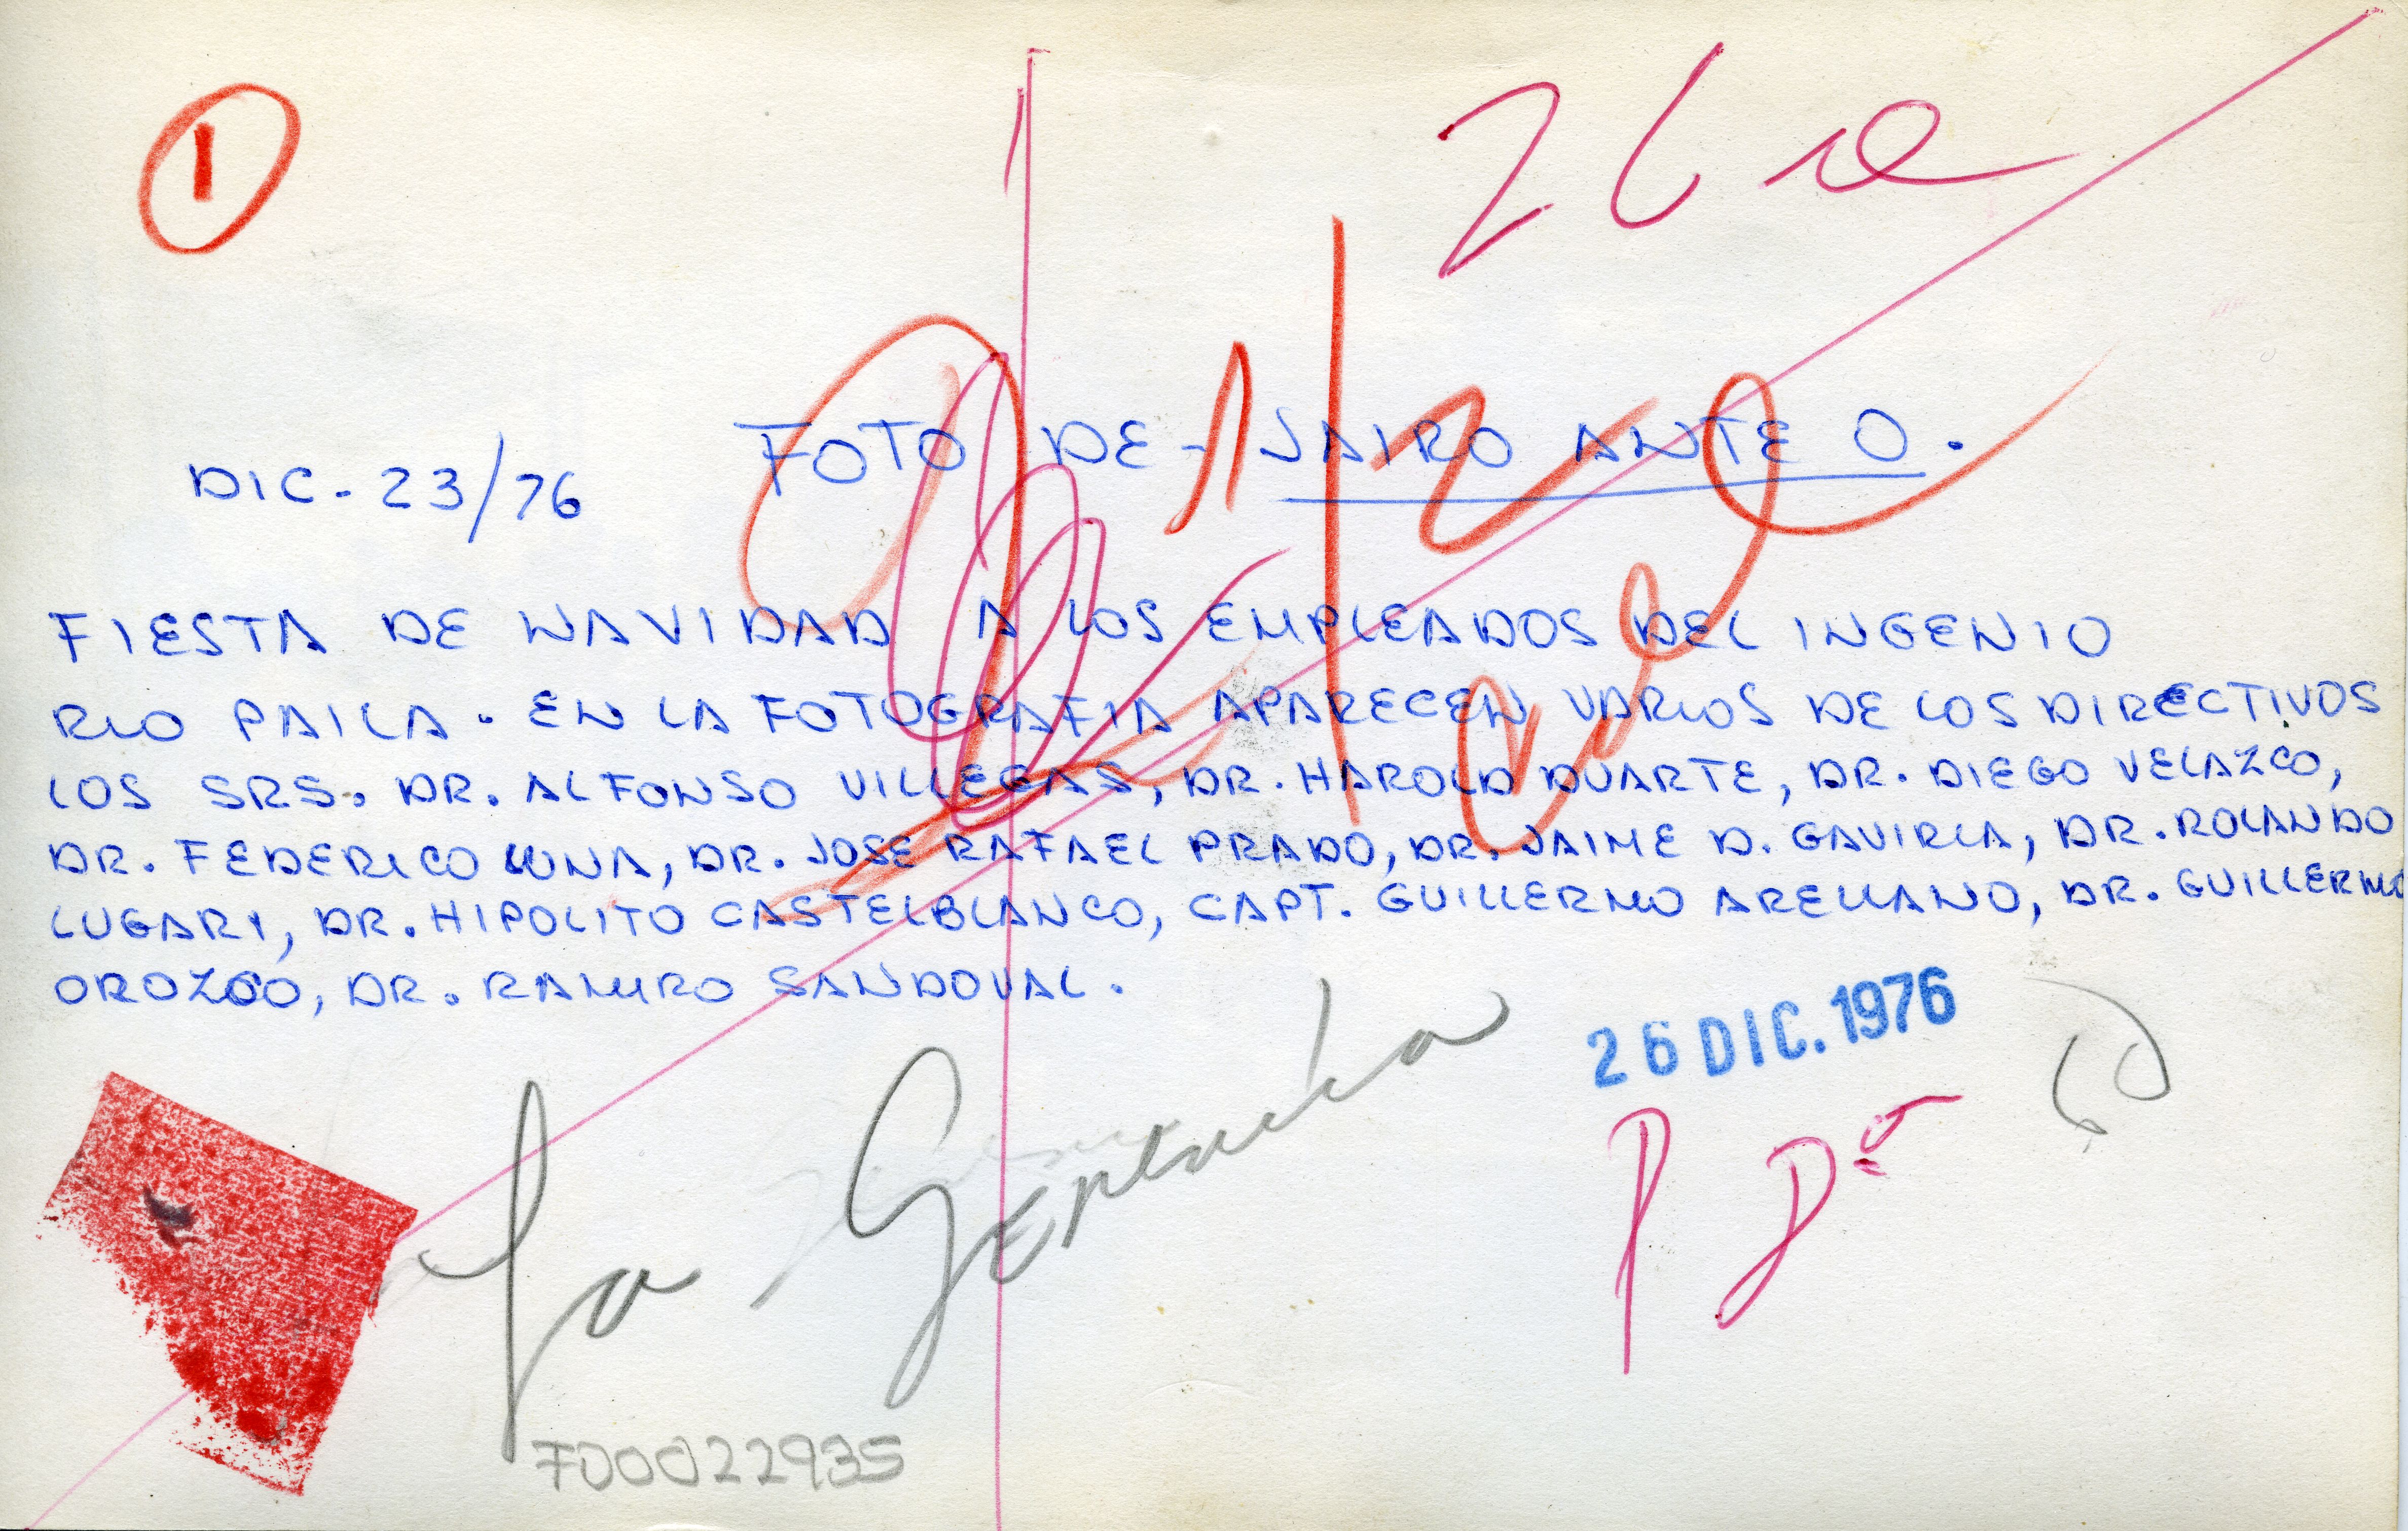 1
DIC-23/76
FOTO DE-JAIRO ANTE O.
FIESTA DE NAVIDAD A LOS EMPLEADOS DEL INGENIO
RIO PAILA. EN LA FOTOGRAFIA APARECEN VARIOS DE LOS DIRECTIVOS
LOS SRS. DR. ALFONSO VILLEGAS, DR. HAROLD DUARTE, DR. DIEGO VELAZCO,
DR. FEDERICO LUNA, DR. JOSE RAFAEL PRADO, DR. JAIME D. GAVIRIA, DR. ROLANDO
LUGARI, DR. HIPOLITO CASTELBLANCO, CAPT. GUILLERMO ARELLANO, DR. GUILLERMO
OROZCO, DR. RAMIRO SANDOVAL.
26 DIC. 1976
F00022935